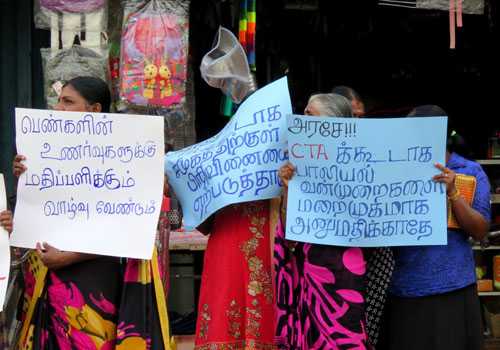 பெண்களின்
உணர்வுகளுக்கு
மதிப்பளிக்கும்
வாழ்வு வேண்டும்
டாக
சமூகத்திற்குள்
பிரிவினையை
ஏற்படுத்தா
அரசே!!!
CTA க்கூடாக
பாலியல்
வன்முறைகளை
மறைமுகமாக
அனுமதிக்காதே